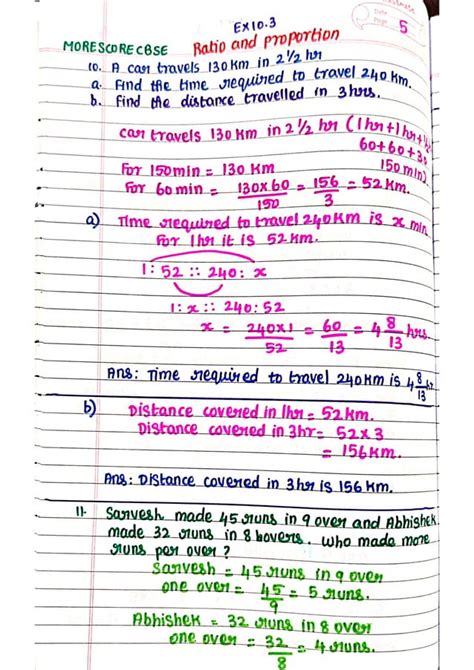 Date
Page 5
EX10.3
MORESCORECBSE Ratio and proportion
10. A car travels 130 Km in 2 1/2 hr
a. Find the time required to travel 240 Km.
b. Find the distance travelled in 3hrs.
car travels 130 Km in 2 1/2 hr (1hr+1hr+1/2
60+60+30
150 min)
For 150min = 130 Km
For 60 min = 130x60/150 = 156/3 = 52 Km.
a) Time required to travel 240Km is x min.
For 1hr it is 52 Km.
1 : 52 :: 240 : x
1 : x :: 240 : 52
x = 240x1/52 = 60/13 = 4 8/13 hrs.
Ans: Time required to travel 240Km is 4 8/13 hr
b) Distance covered in 1hr = 52 Km.
Distance covered in 3hr = 52 x 3
= 156 Km.
Ans: Distance covered in 3hr is 156 Km.
11. Sarvesh made 45 runs in 9 over and Abhishek
made 32 runs in 8 overs. who made more
runs per over ?
Sarvesh = 45 runs in 9 over
one over = 45/9 = 5 runs.
Abhishek = 32 runs in 8 over
one over = 32/8 = 4 runs.